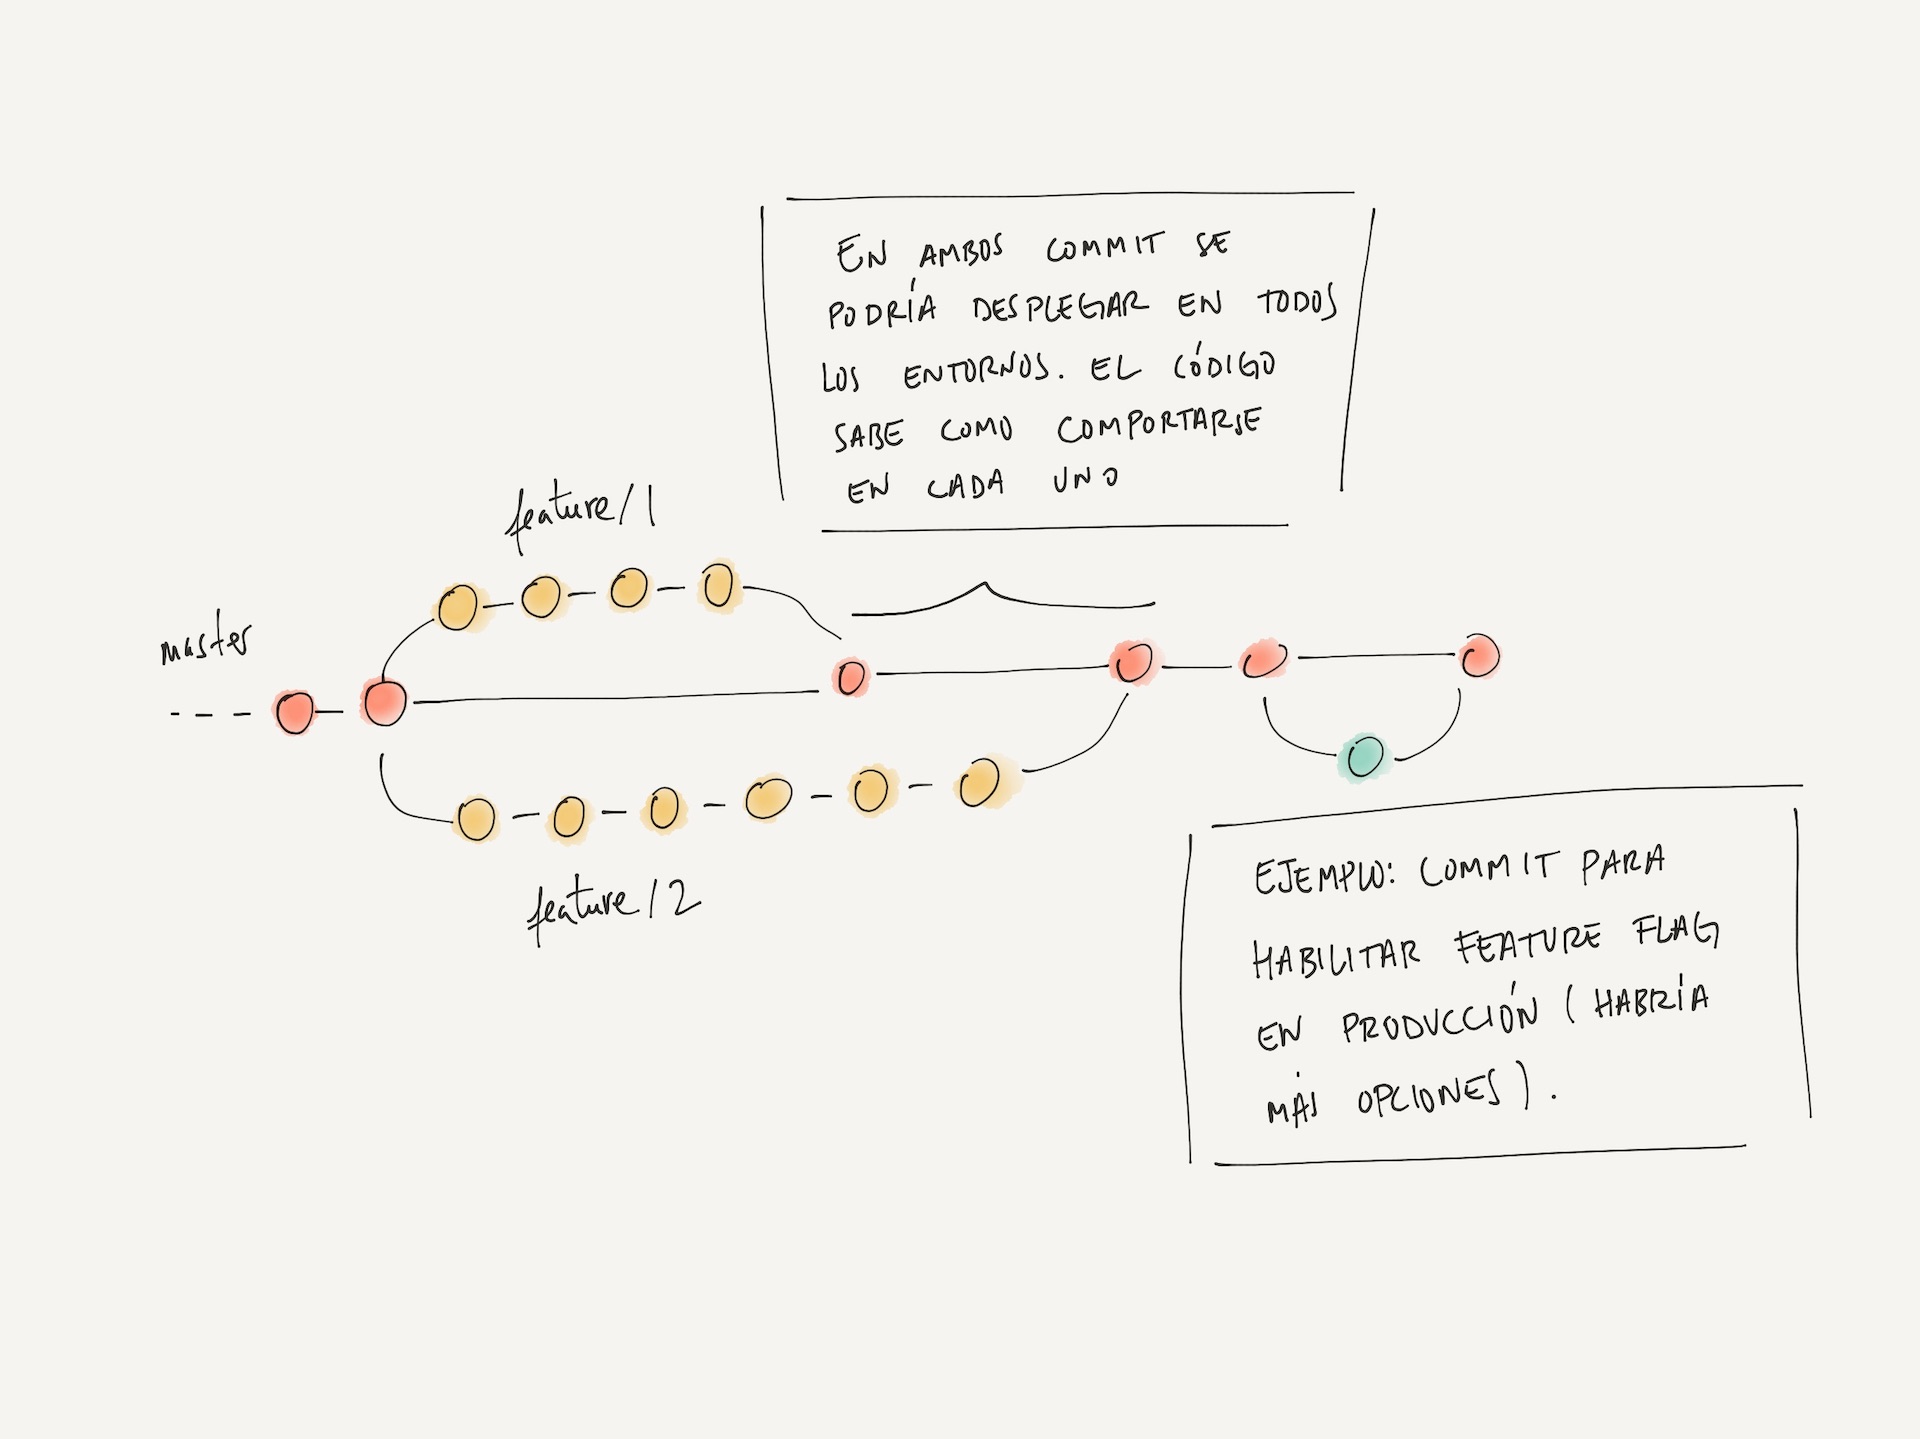 EN AMBOS COMMIT SE
PODRÍA DESPLEGAR EN TODOS
LOS ENTORNOS. EL CÓDIGO
SABE COMO COMPORTARSE
EN CADA UNO
feature/1
master
feature/2
EJEMPLO: COMMIT PARA
HABILITAR FEATURE FLAG
EN PRODUCCIÓN (HABRÍA
MÁS OPCIONES).